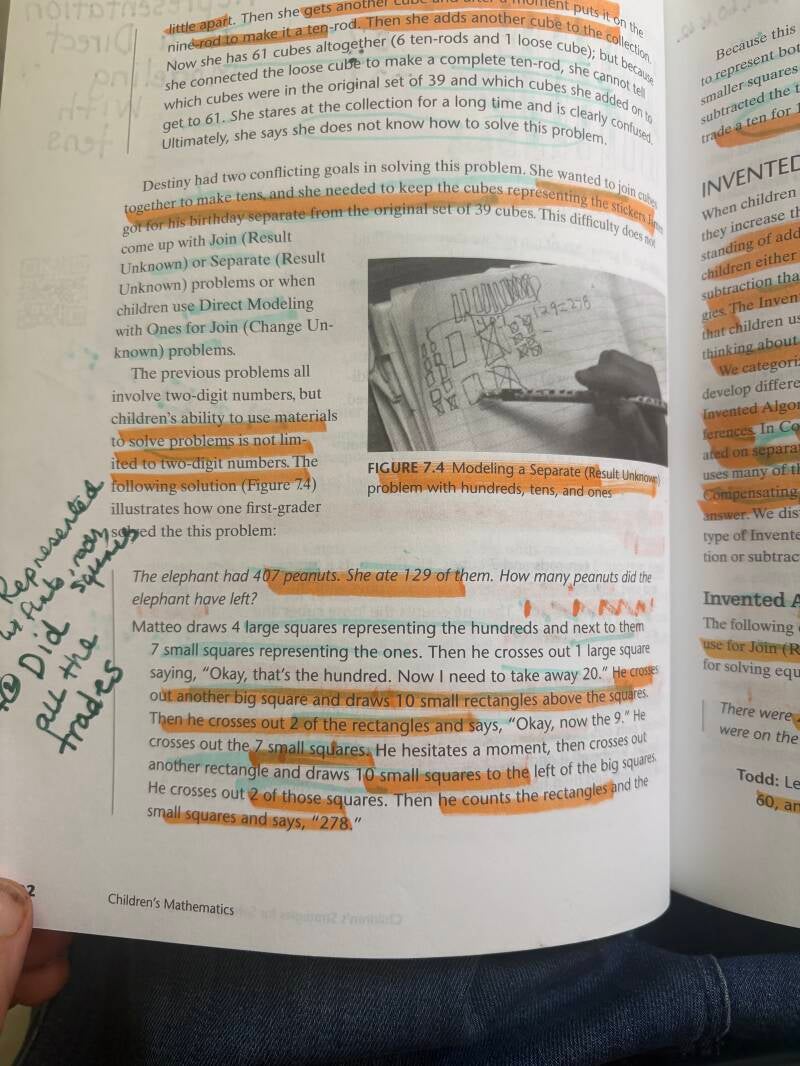 little apart. Then she gets another cube and after a moment puts it on the
nine-rod to make it a ten-rod. Then she adds another cube to the collection.
Now she has 61 cubes altogether (6 ten-rods and 1 loose cube); but because
she connected the loose cube to make a complete ten-rod, she cannot tell
which cubes were in the original set of 39 and which cubes she added on to
get to 61. She stares at the collection for a long time and is clearly confused.
Ultimately, she says she does not know how to solve this problem.
Destiny had two conflicting goals in solving this problem. She wanted to join cubes
together to make tens, and she needed to keep the cubes representing the stickers
got for his birthday separate from the original set of 39 cubes. This difficulty does not
come up with Join (Result
Unknown) or Separate (Result
Unknown) problems or when
children use Direct Modeling
with Ones for Join (Change Un-
known) problems.
The previous problems all
involve two-digit numbers, but
children's ability to use materials
to solve problems is not lim-
ited to two-digit numbers. The
following solution (Figure 7.4)
illustrates how one first-grader
solved the this problem:
129=278
FIGURE 7.4 Modeling a Separate (Result Unknown)
problem with hundreds, tens, and ones
The elephant had 407 peanuts. She ate 129 of them. How many peanuts did the
elephant have left?
Matteo draws 4 large squares representing the hundreds and next to them
7 small squares representing the ones. Then he crosses out 1 large square
saying, "Okay, that's the hundred. Now I need to take away 20." He crosses
out another big square and draws 10 small rectangles above the squares.
Then he crosses out 2 of the rectangles and says, "Okay, now the 9." He
crosses out the 7 small squares. He hesitates a moment, then crosses out
another rectangle and draws 10 small squares to the left of the big squares.
He crosses out 2 of those squares. Then he counts the rectangles and the
small squares and says, "278."
Represented
w/ flats, rods,
squares
Did
all the
trades
2
Children's Mathematics
Because this
to represent bot
smaller squares
subtracted the t
trade a ten for 1
INVENTED
When children
they increase th
standing of add
children either
subtraction tha
gies. The Inven
that children us
thinking about
We categoriz
develop differe
Invented Algor
ferences. In Co
ated on separat
uses many of th
Compensating,
answer. We dis
type of Invente
tion or subtrac
Invented A
The following
use for Join (R
for solving equ
There were
were on the
Todd: Le
60, an